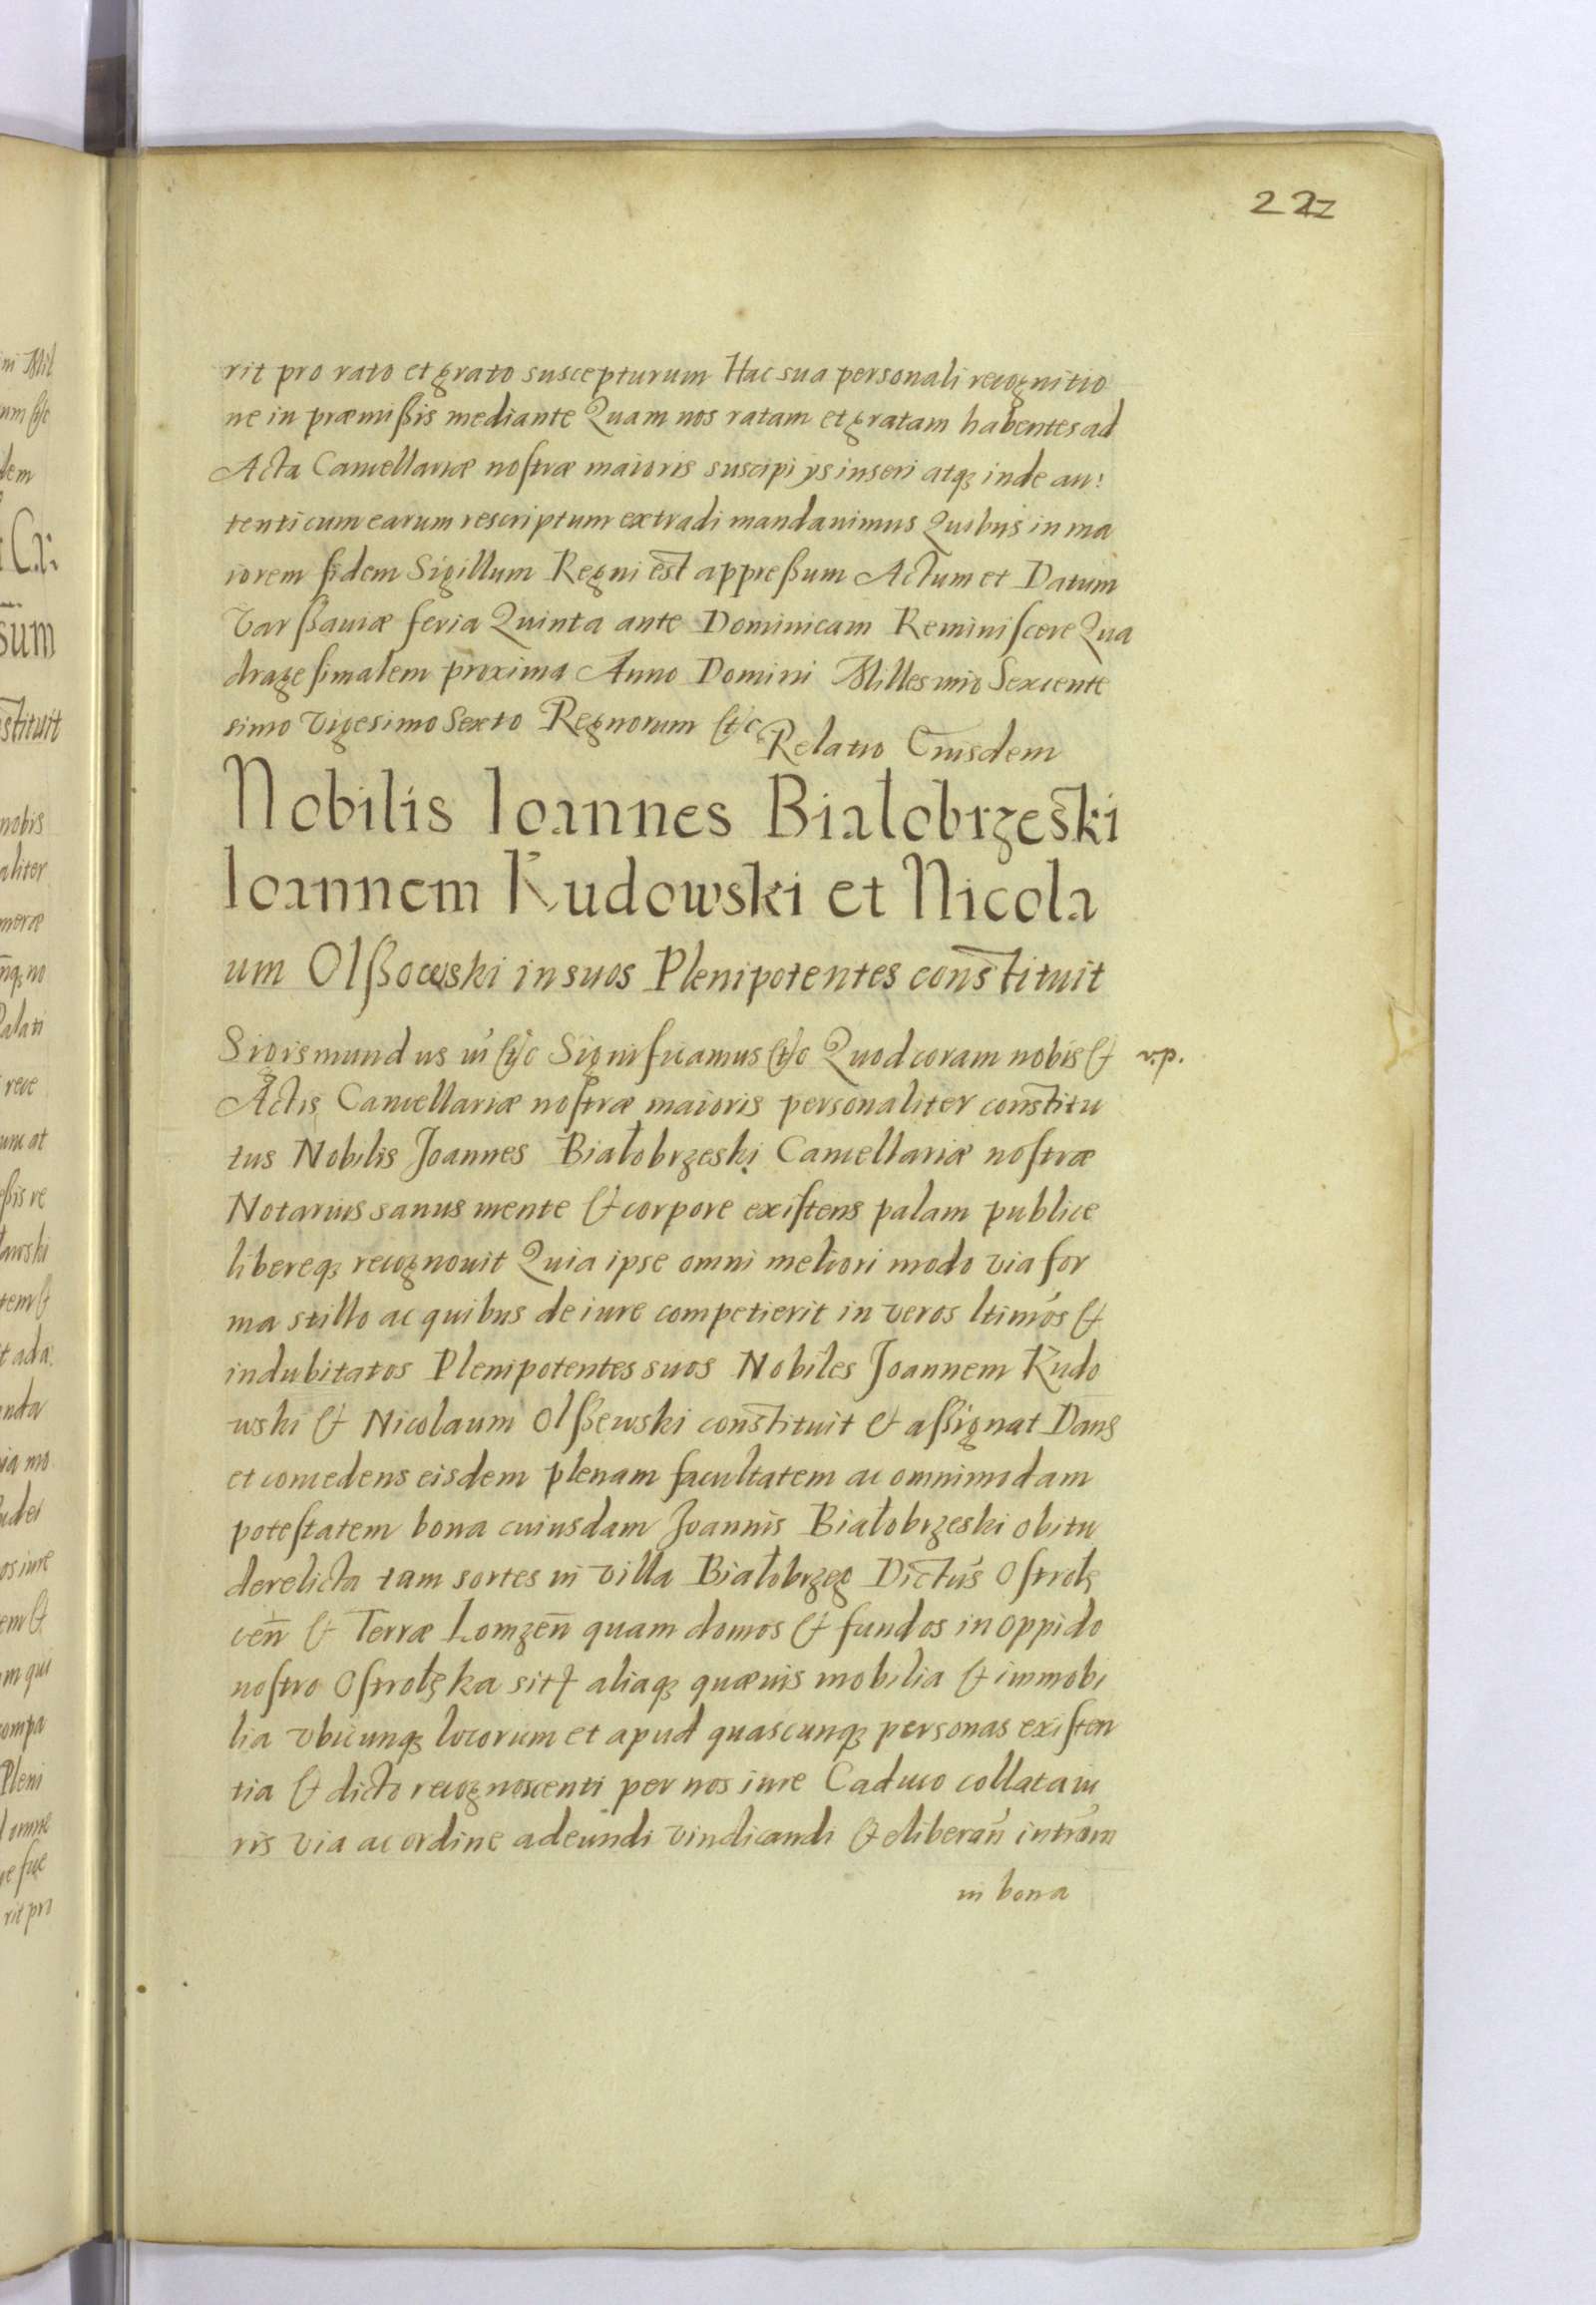 222
rit pro rato et grato suscepturum Hac sua personali recognitio
ne in præmißis mediante Quam nos ratam et gratam habentes ad
Acta Cancellariæ nostræ maioris suscipi ys inseri atq₃ inde au:
tenticum earum rescriptum extradi mandauimus Quibus in ma
iorem fidem Sigillum Regni est appreßum Actum et Datum
Varßauiæ feria Quinta ante Dominicam Reminiscere Qua
dragesimalem proxima Anno Domini Millesimo Sexcente
simo Vigesimo Sexto Regnorum &c
Relatio Eiusdem
Nobilis Ioannes Białobrzeski
Ioannem Kudowski et Nicola
um Olßowski in suos Plenipotentes constituit
Sigismundus iii &c Significamus &c Quod coram nobis &
v.p.
Actis Cancellariæ nostræ maioris personaliter constitu
tus Nobilis Joannes Białobrzeski Cancellariæ nostræ
Notarius sanus mente & corpore existens palam publice
libereq₃ recognouit Quia ipse omni meliori modo via for
ma stillo ac quibus de iure competierit in veros ltimos &
indubitatos Plenipotentes suos Nobiles Joannem Kudo
wski & Nicolaum Olßewski constituit & aßignat Dans
et concedens eisdem plenam facultatem ac omnimodam
potestatem bona cuiusdam Joannis Białobrzeski obitu
derelicta tam sortes in villa Białobrzeg Dictus Ostrolę
cen̄ & Terræ Lomzen̄ quam domos & fundos in oppido
nostro Ostrolęka sit aliaq₃ quæuis mobilia & immobi
lia vbicunq₃ locorum et apud quascunq₃ personas existen
tia & dicto recognoscenti per nos iure Caduco collata iu
ris via ac ordine adeundi vindicandi & eliberan̄ intrōm
in bona